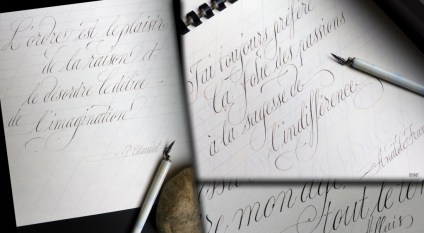 L'ordre est le plaisir
de la raison et
le désordre le délice
de l'imagination
P. Claudel
J'ai toujours préféré
la folie des passions
à la sagesse de
l'indifférence
Anatole Fran
mon
tout le